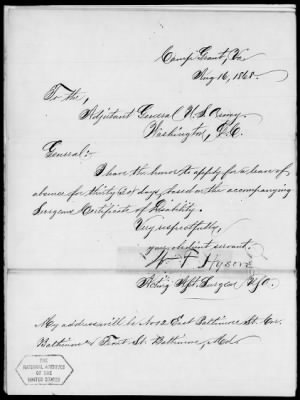 Camp Grant, Va
Aug 16, 1868.
To the,
Adjutant General U.S. Army.
Washington, D.C.
General:-
I have the honor to apply for a leave of
absence for thirty days, based on the accompanying
Surgeons Certificate of Disability.
Very respectfully,
your obedient servant.
Hysore
Acting Asst. Surgeon U.S.A.
My address will be No 12 East Baltimore St. Cor.
Baltimore & Front St. Baltimore, Md.
THE
NATIONAL ARCHIVES
OF THE
UNITED STATES